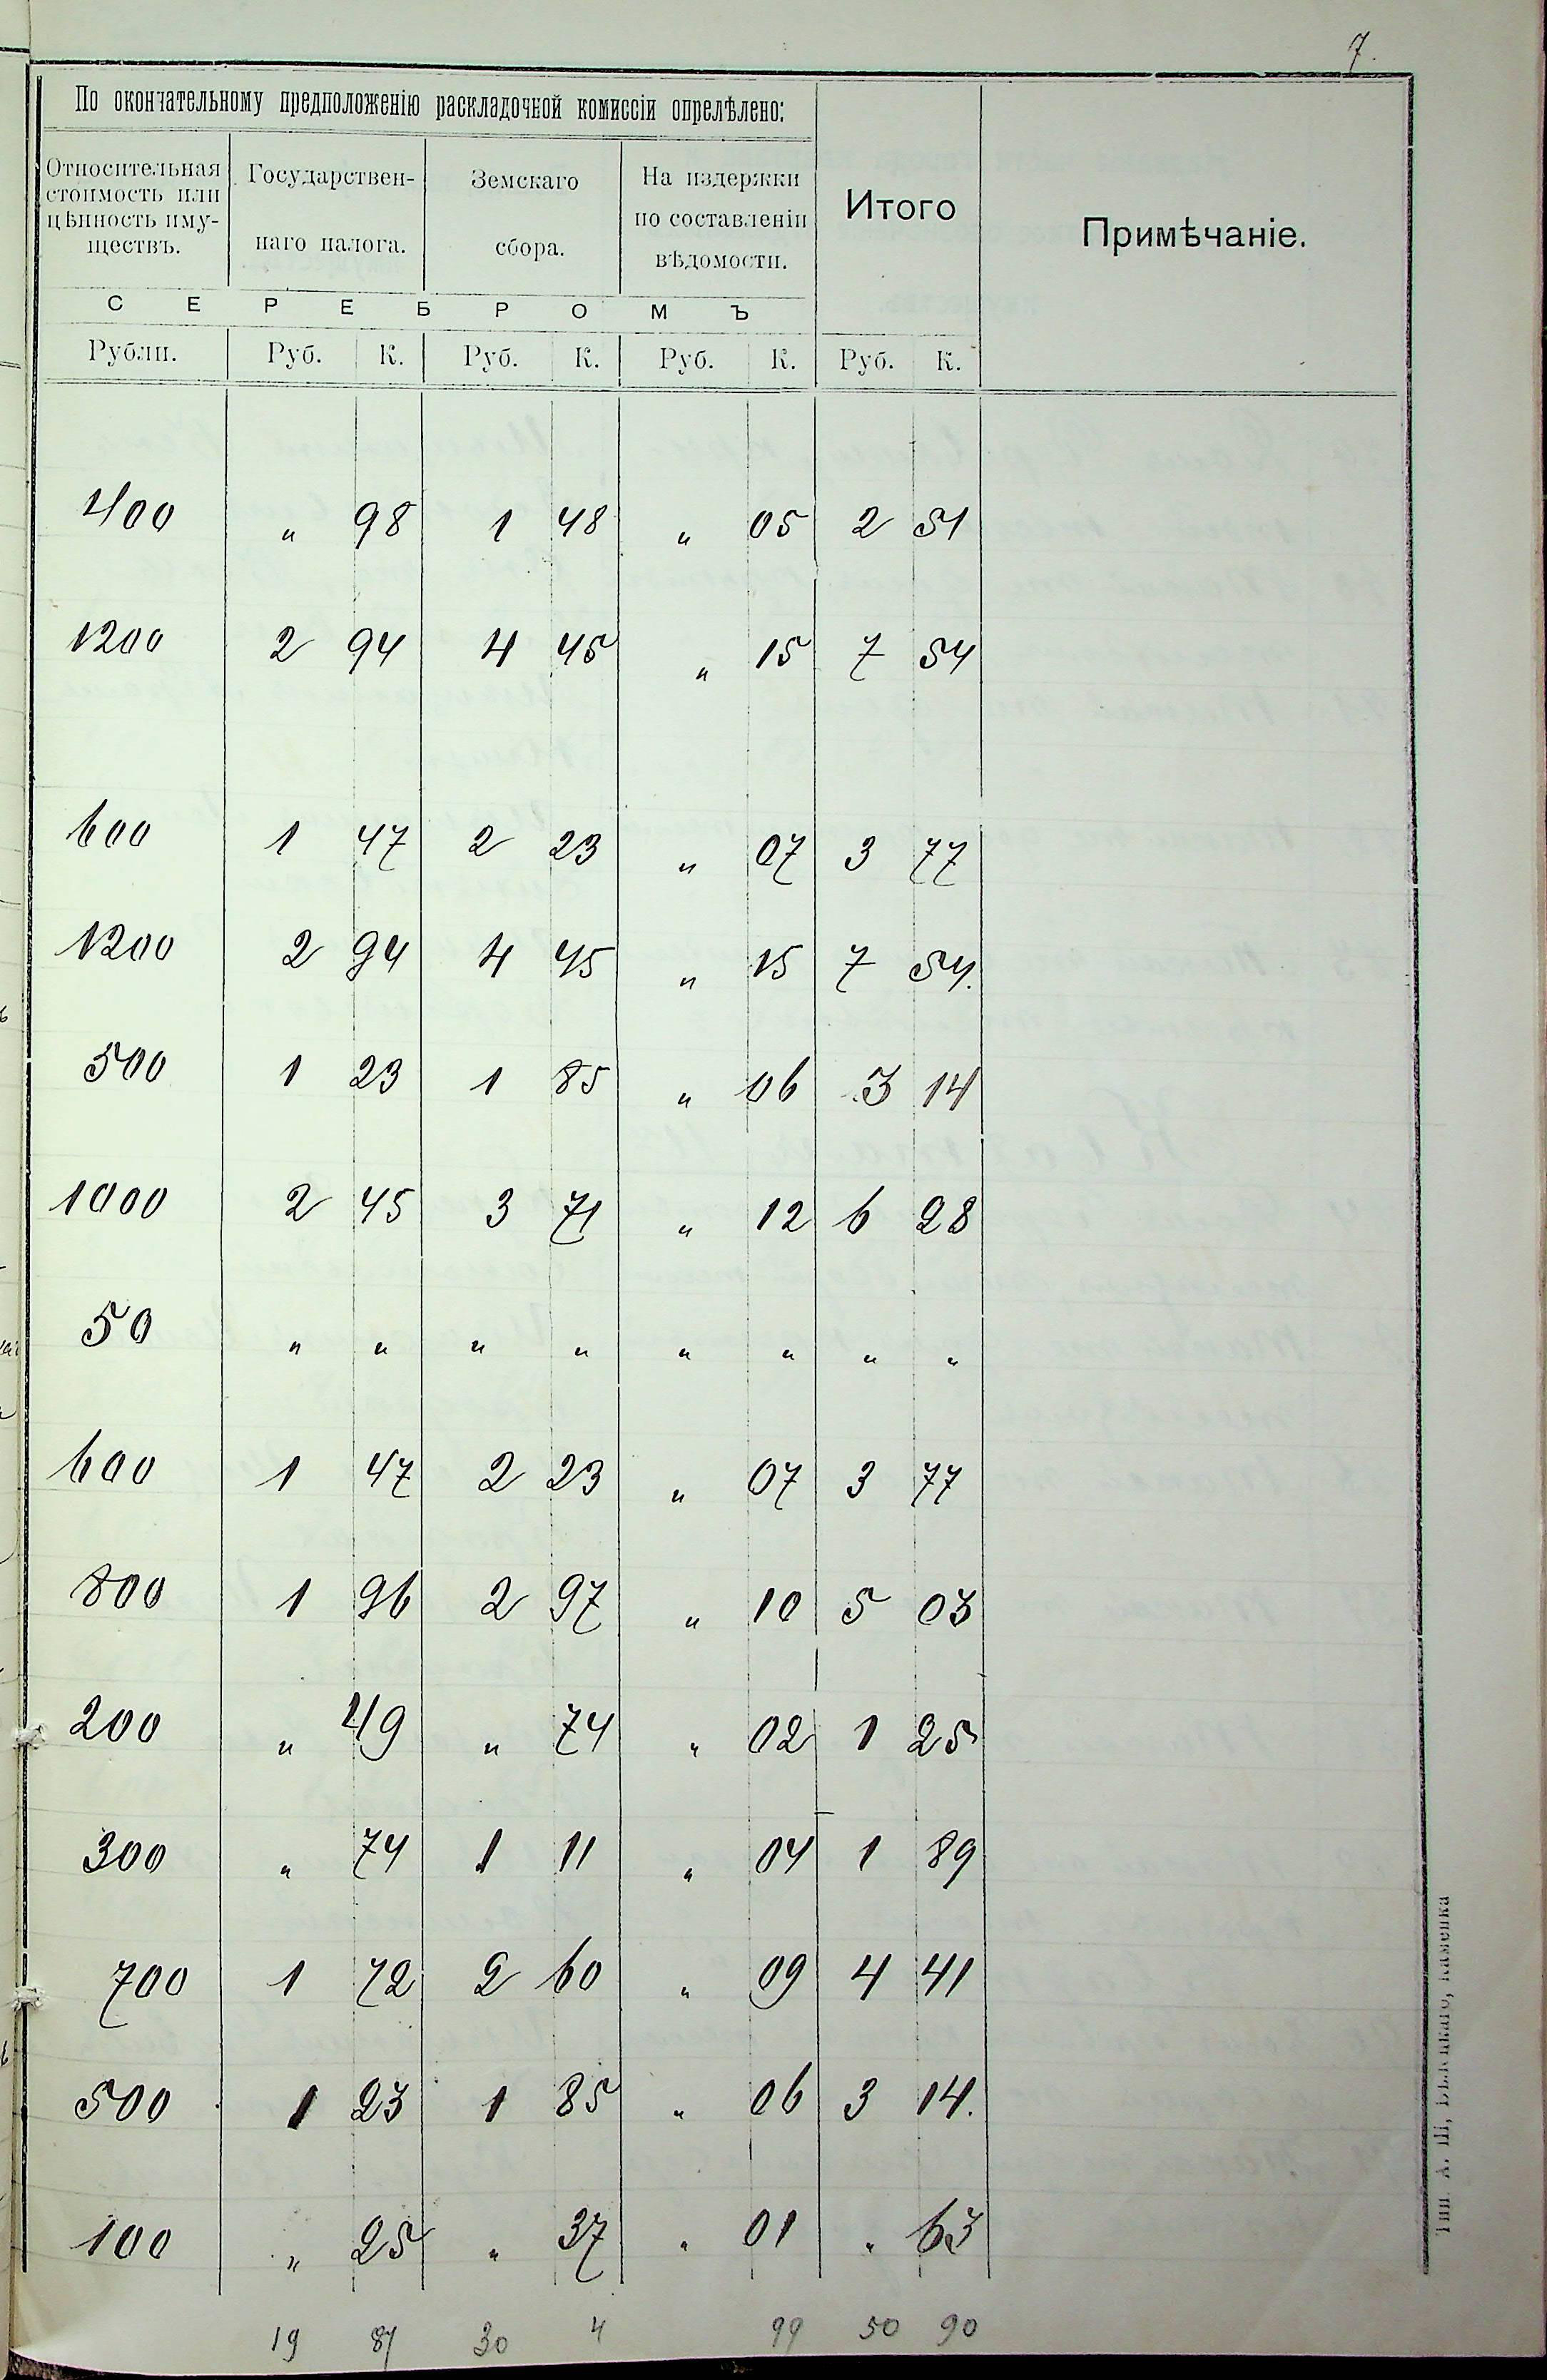 7.
По окончательному предположенію раскладочной комиссіи опрелѣлено:
Относительная стоимость или цѣнность имуществъ.
Государственнаго налога.
Земскаго сбора.
На издержки по составленіи вѣдомости.
Итого
Примѣчаніе.
С Е Р Е Б Р О М Ъ
Рубли. Руб. К. Руб. К. Руб. К. Руб. К.
400 „ 98 1 48 „ 05 2 51
1200 2 94 4 45 „ 15 7 54
600 1 47 2 23 „ 07 3 77
1200 2 94 4 45 „ 15 7 54.
500 1 23 1 85 „ 06 3 14
1000 2 45 3 71 „ 12 6 28
50 „ „ „ „ „ „ „ „
600 1 47 2 23 „ 07 3 77
800 1 96 2 97 „ 10 5 03
200 „ 49 „ 74 „ 02 1 25
300 „ 74 1 11 „ 04 1 89
700 1 72 2 60 „ 09 4 41
500 1 23 1 85 „ 06 3 14.
100 „ 25 „ 37 „ 01 „ 63
19 87 30 4 99 50 90
Тип. А. Ш. Каменка